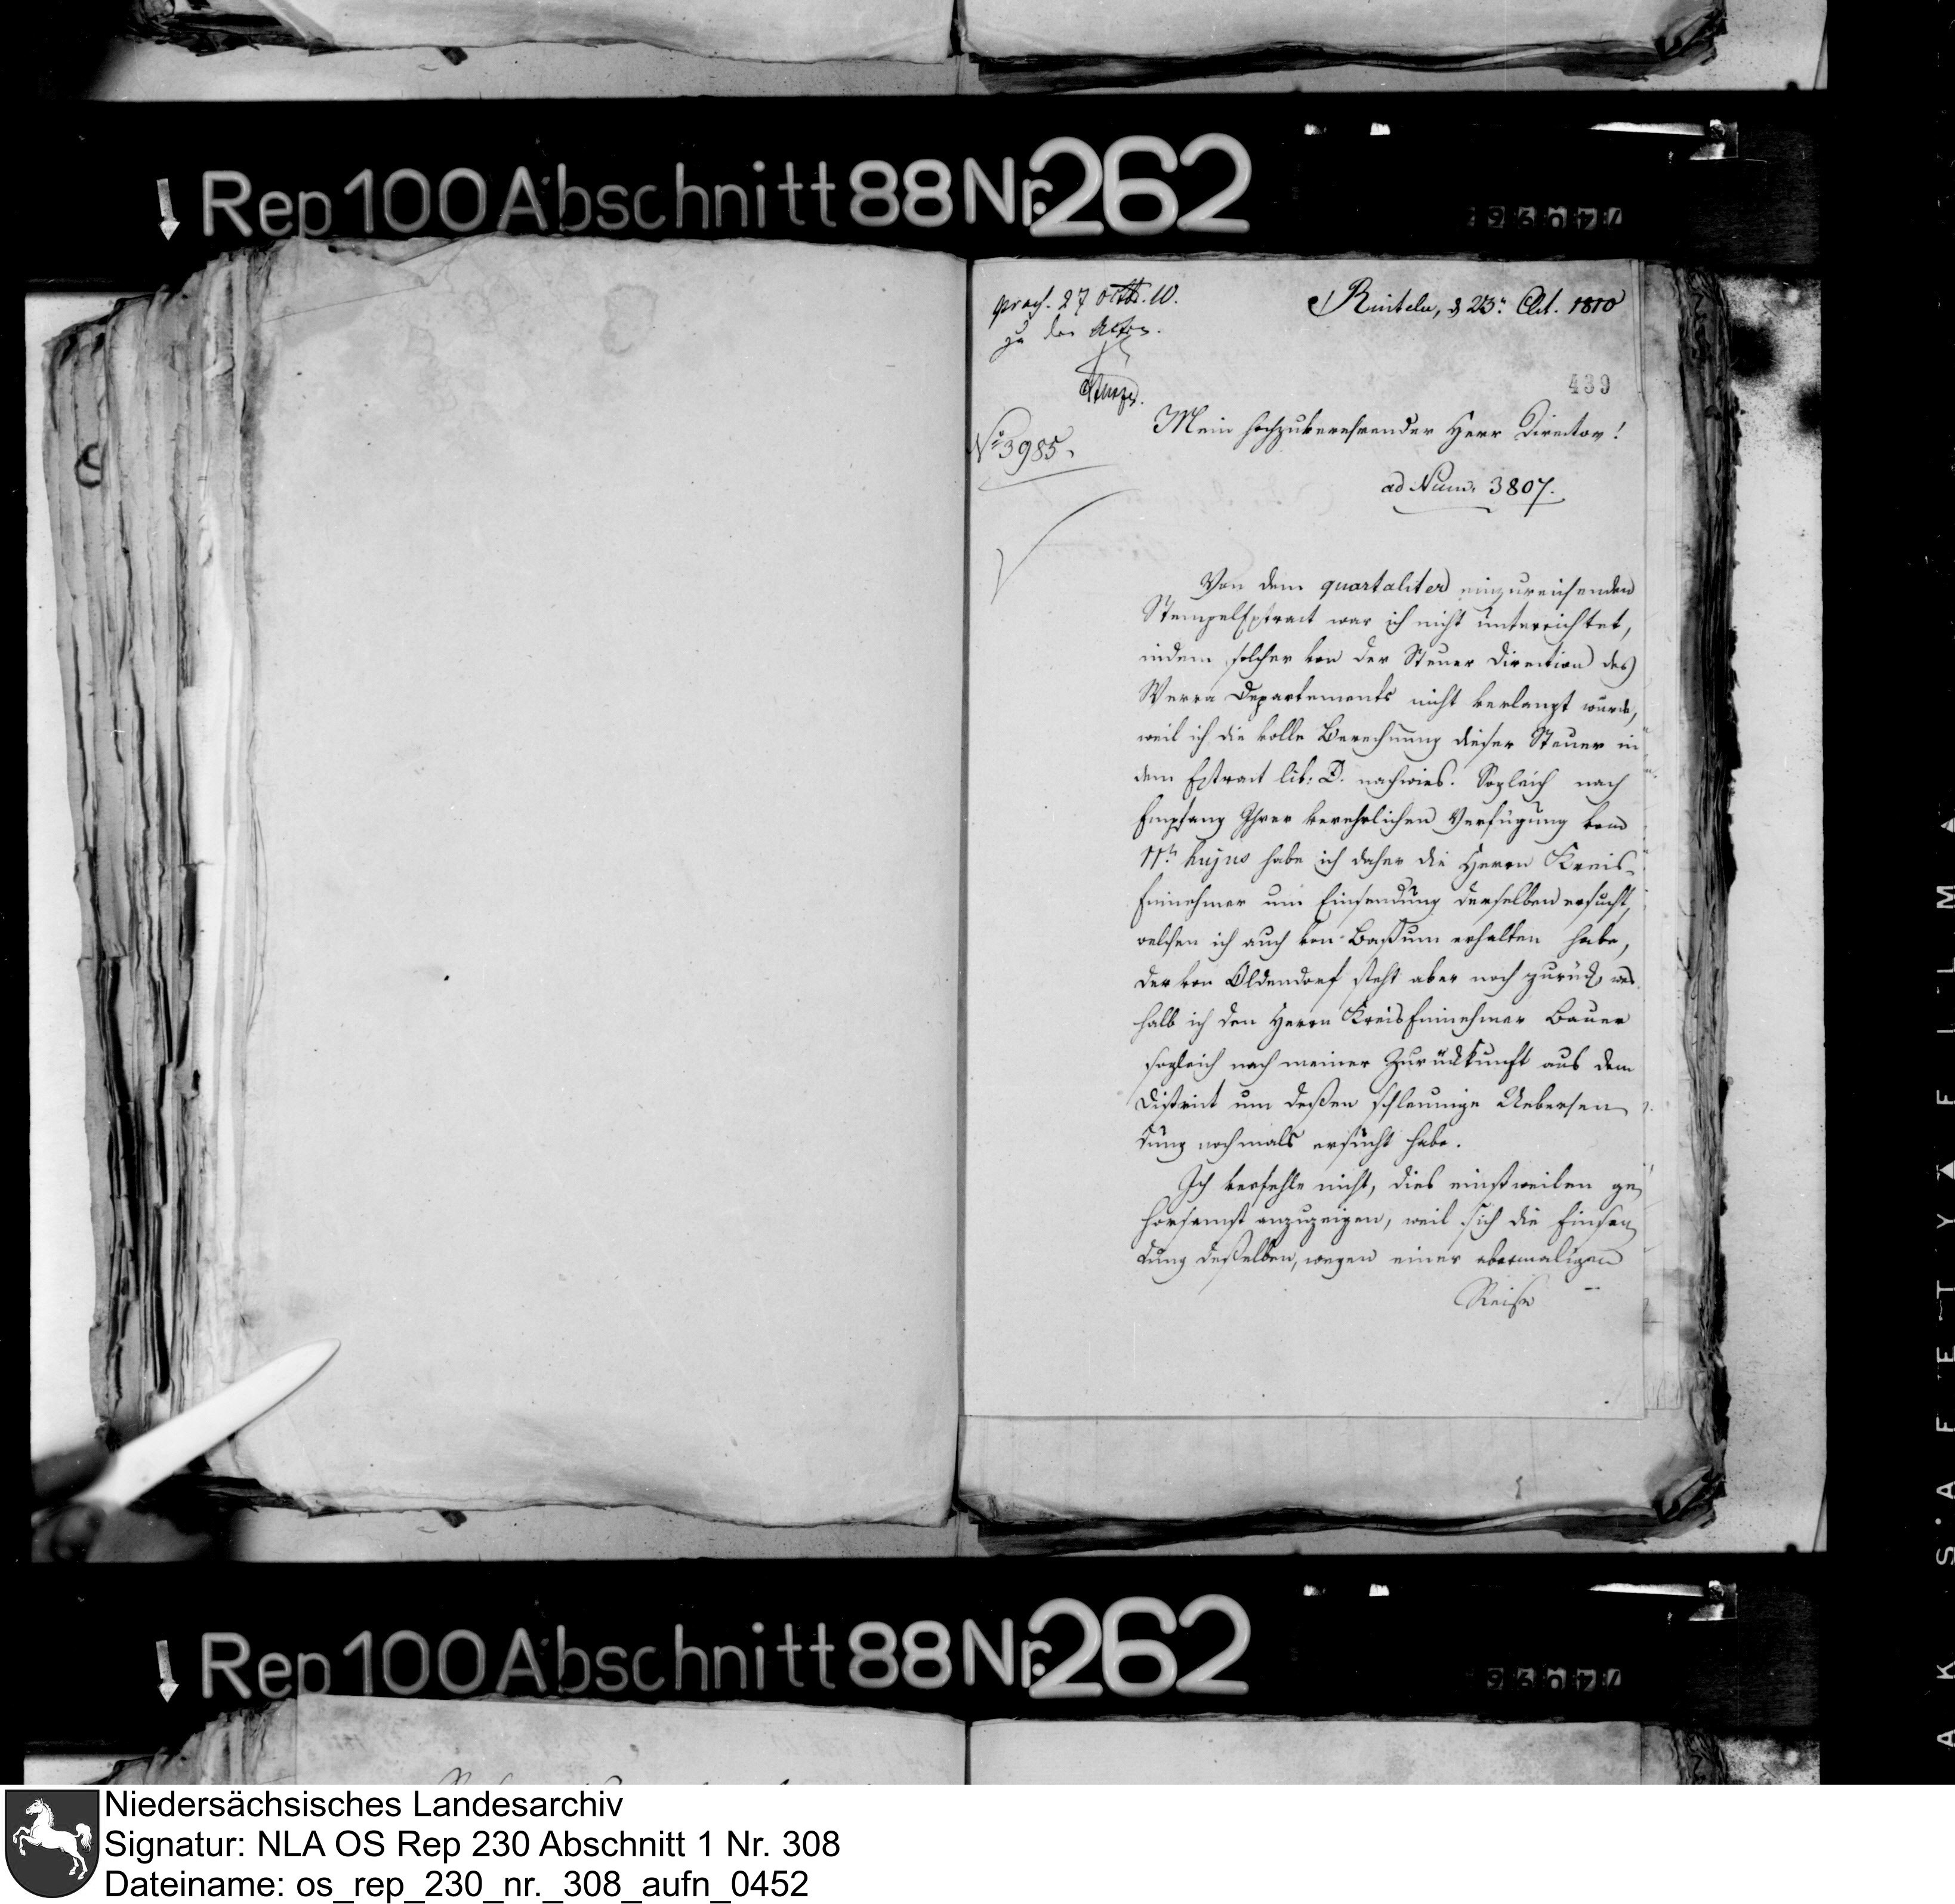 Rep 100 Abschnitt 88 Nr. 262
praes. 27 Octb. 10.
zu den Acten.
Rinteln, d 23n Oct. 1810
439
No 3985.
Mein hochzuverehrender Herr Director!
ad Num. 3807.
Von dem quartaliter einzureichenden
StempelExtract war ich nicht unterrichtet,
indem solcher von der Steuer Direction des
Werra Departements nicht verlangt wurde,
weil ich die volle Berechnung dieser Steuer in
dem Extract lit: D. nachwies. Sogleich nach
Empfang Ihrer verehrlichen Verfügung vom
11tn hujus habe ich daher die Herrn Kreis-
Einnehmer um Einsendung derselben ersucht,
welchen ich auch von Baßum erhalten habe,
der von Oldendorf steht aber noch zurück, wes
halb ich den Herrn KreisEinnehmer Bauer
sogleich nach meiner Zurückkunft aus dem
District um deßen schleunige Uebersen
dung nochmals ersucht habe.
Ich verfehle nicht, dies einstweilen ge
horsamst anzuzeigen, weil sich die Einsen
dung deßelben, wegen einer abermaligen
Reise
Rep 100 Abschnitt 88 Nr. 262
SAFETY FILM
Niedersächsisches Landesarchiv
Signatur: NLA OS Rep 230 Abschnitt 1 Nr. 308
Dateiname: os_rep_230_nr._308_aufn_0452